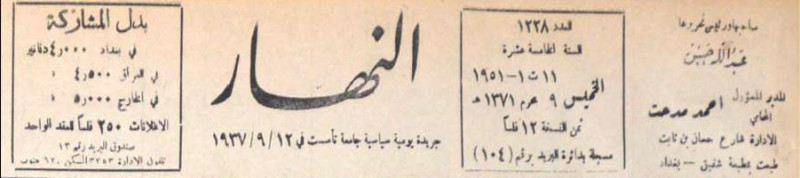 صاحبها ورئيس تحريرها
عبد الله حسن
المدير المسؤول
المحامي
احمد مدحت
الادارة شارع حسان بن ثابت
طبعت بمطبعة شفيق – بغداد
العدد ١٢٢٨
السنة الخامسة عشرة
١١ ت ١ – ١٩٥١
الخميس
٩ محرم ١٣٧١ هـ
ثمن النسخة ١٢ فلساً
مسجلة بدائرة البريد برقم (١٠٤)
النهار
جريدة يومية سياسية جامعة تأسست في ١٩٣٧/٩/١٢
بدل المشاركة
في بغداد ٤٫٠٠٠ دنانير
في العراق ٤٫٥٠٠ »
في الخارج ٥٫٠٠٠ »
الاعلانات ٢٥٠ فلساً للعقد الواحد
صندوق البريد رقم ١٣
تلفون الادارة ٣٢٥٣ السكن ٦٢٠ جنوب